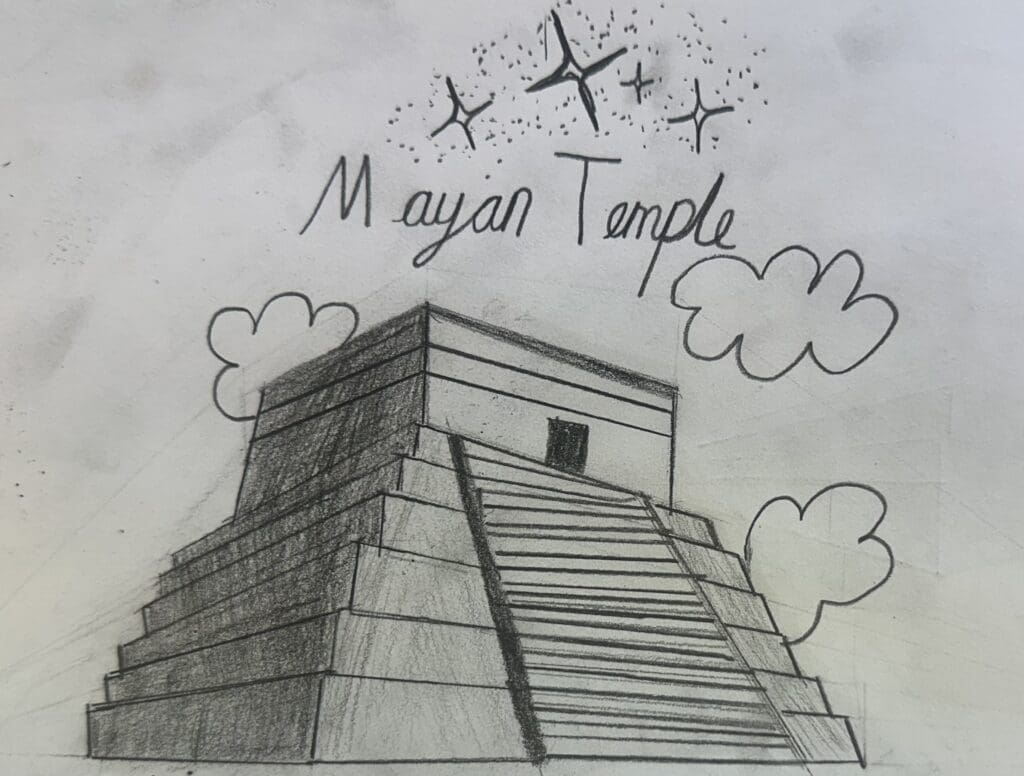 Mayan Temple